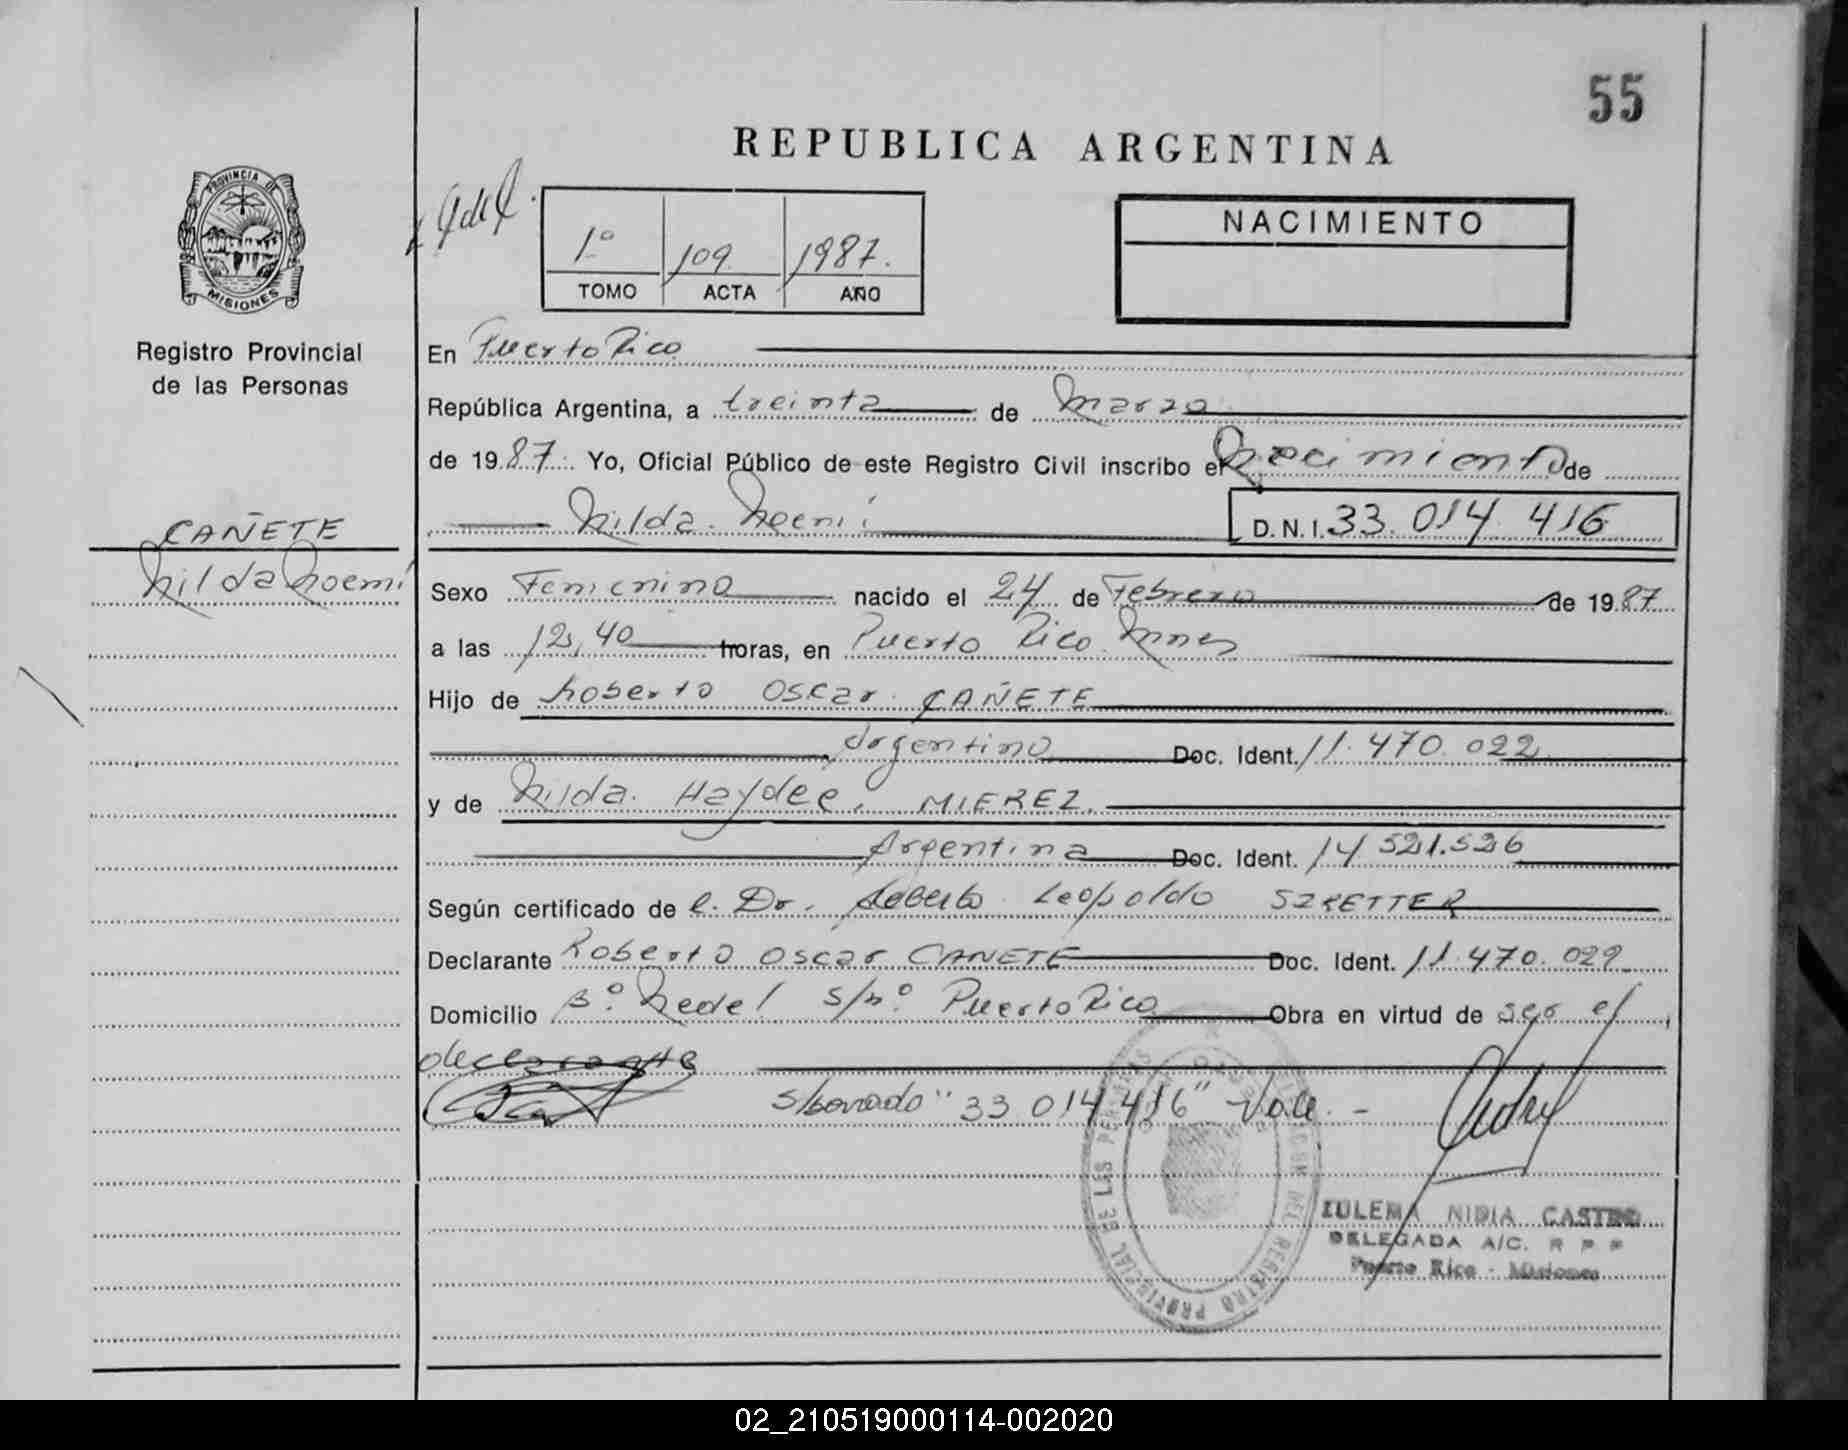 55
REPUBLICA ARGENTINA
PROVINCIA DE
MISIONES
Registro Provincial
de las Personas
1º 109 1987.
TOMO ACTA AÑO
NACIMIENTO
En Puerto Rico
República Argentina, a treinta de Marzo
de 1987. Yo, Oficial Público de este Registro Civil inscribo el Nacimiento de
Nilda Noemi D. N. I. 33.014.416
CAÑETE
Nilda Noemi
Sexo Femenino nacido el 24 de Febrero de 1987
a las 12,40 horas, en Puerto Rico Mnes
Hijo de Roberto Oscar CAÑETE
Argentino Doc. Ident. 11.470.022
y de Nilda Haydee MIEREZ.
Argentina Doc. Ident. 14.521.526
Según certificado de l. Dr. Roberto Leopoldo SZRETTER
Declarante Roberto Oscar CAÑETE Doc. Ident. 11.470.022
Domicilio Bº s/nº Puerto Rico Obra en virtud de ser el
declarante
s/borrado "33 014 416" Vale. -
REGISTRO PROVINCIAL DE LAS PERSONAS
ZULEMA NIDIA CASTRO
DELEGADA A/C. R P P
Puerto Rico - Misiones
02_210519000114-002020